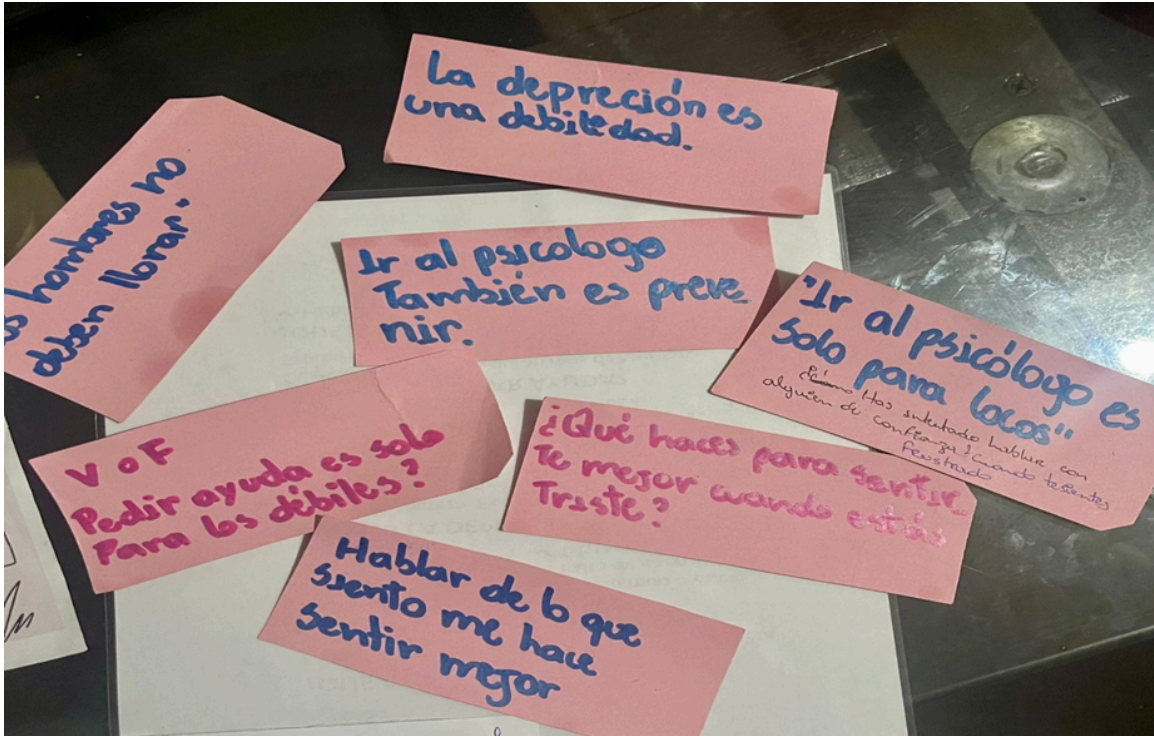 La depreción es
una debilidad.
hombres no
deben llorar"
Ir al psicologo
También es preve_
nir.
"Ir al psicólogo es
solo para locos"
Has intentado hablar con
alguien de confianza? Cuando tesientes
frustrado
V o F
Pedir ayuda es solo
Para los débiles?
¿Qué haces para sentir_
Te mejor cuando estás
Triste?
Hablar de lo que
siento me hace
sentir mejor